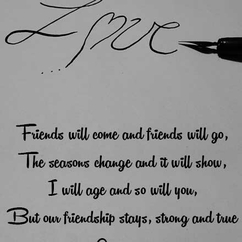 Love
...
Friends will come and friends will go,
The seasons change and it will show,
I will age and so will you,
But our friendship stays, strong and true